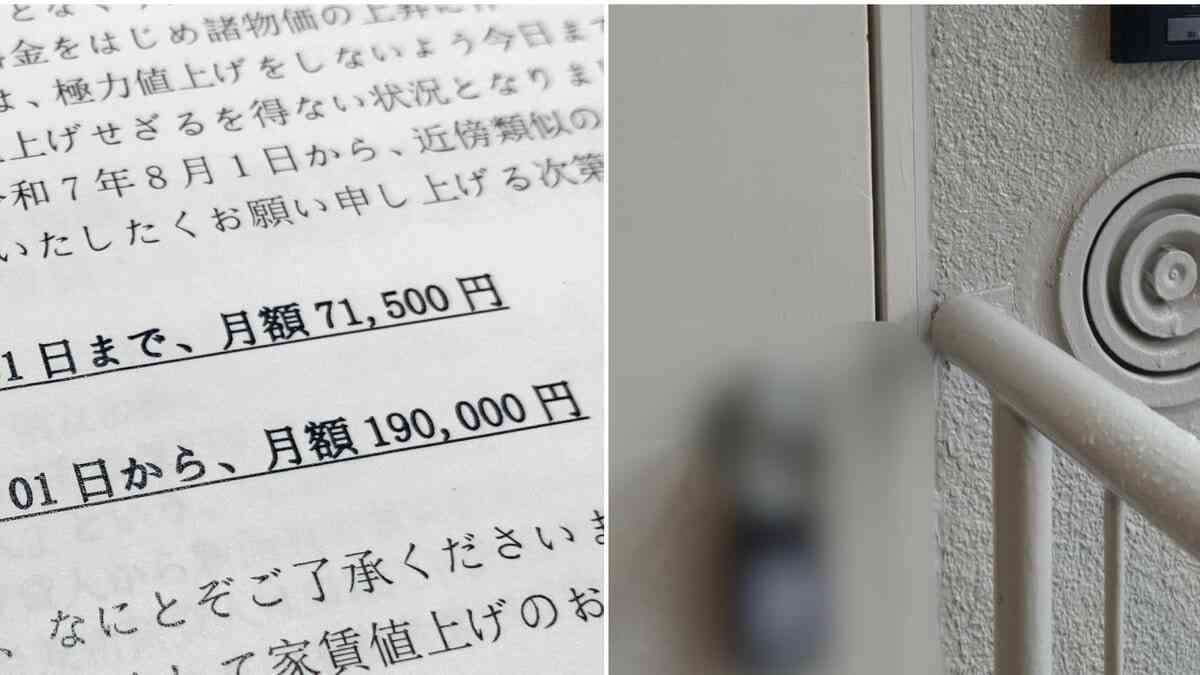 金をはじめ諸物価の上昇に
は、極力値上げをしないよう今日ま
上げせざるを得ない状況となりま
和7年8月1日から、近傍類似の
いたしたくお願い申し上げる次第
1日まで、月額71,500円
01日から、月額190,000円
、なにとぞご了承くださいま
て家賃値上げのお